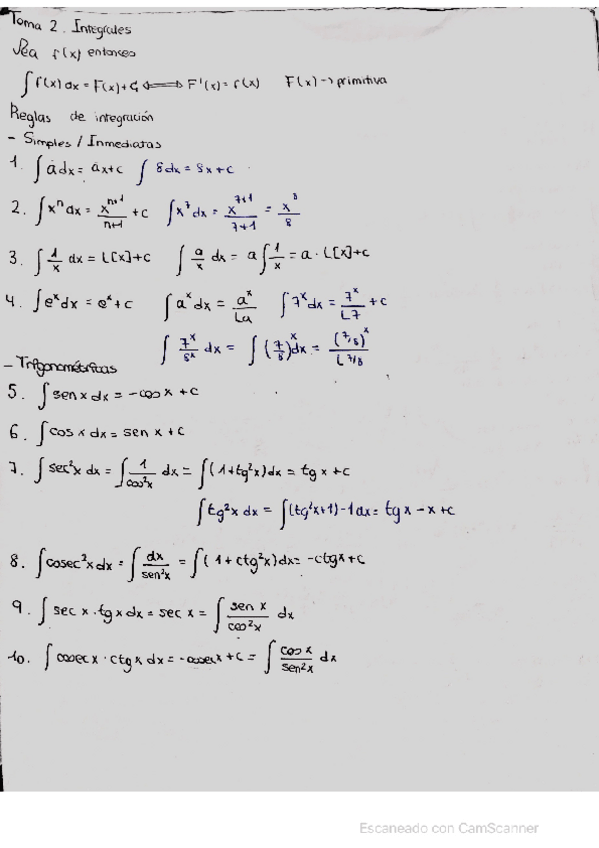 Tema 2. Integrales
Sea f(x) entonces
∫f(x)dx = F(x)+C ⟺ F'(x) = f(x) F(x) → primitiva
Reglas de integración
- Simples / Inmediatas
1. ∫a dx = ax+c ∫8dx = 8x+c
2. ∫xⁿdx = xⁿ⁺¹/n+1 + c ∫x⁷dx = x⁷⁺¹/7+1 = x⁸/8
3. ∫1/x dx = L[x]+c ∫a/x dx = a∫1/x = a · L[x]+c
4. ∫eˣdx = eˣ+c ∫aˣdx = aˣ/La ∫7ˣdx = 7ˣ/L7 + c
∫7ˣ/8ˣ dx = ∫(7/8)ˣdx = (7/8)ˣ/L7/8
- Trigonométricas
5. ∫sen x dx = -cos x + c
6. ∫cos x dx = sen x + c
7. ∫sec²x dx = ∫1/cos²x dx = ∫(1+tg²x)dx = tg x + c
∫tg²x dx = ∫(tg²x+1)-1dx = tg x - x + c
8. ∫cosec²x dx = ∫dx/sen²x = ∫(1+ctg²x)dx = -ctgx+c
9. ∫sec x · tg x dx = sec x = ∫sen x/cos²x dx
10. ∫cosec x · ctg x dx = -cosec x + c = ∫cos x/sen²x dx
Escaneado con CamScanner